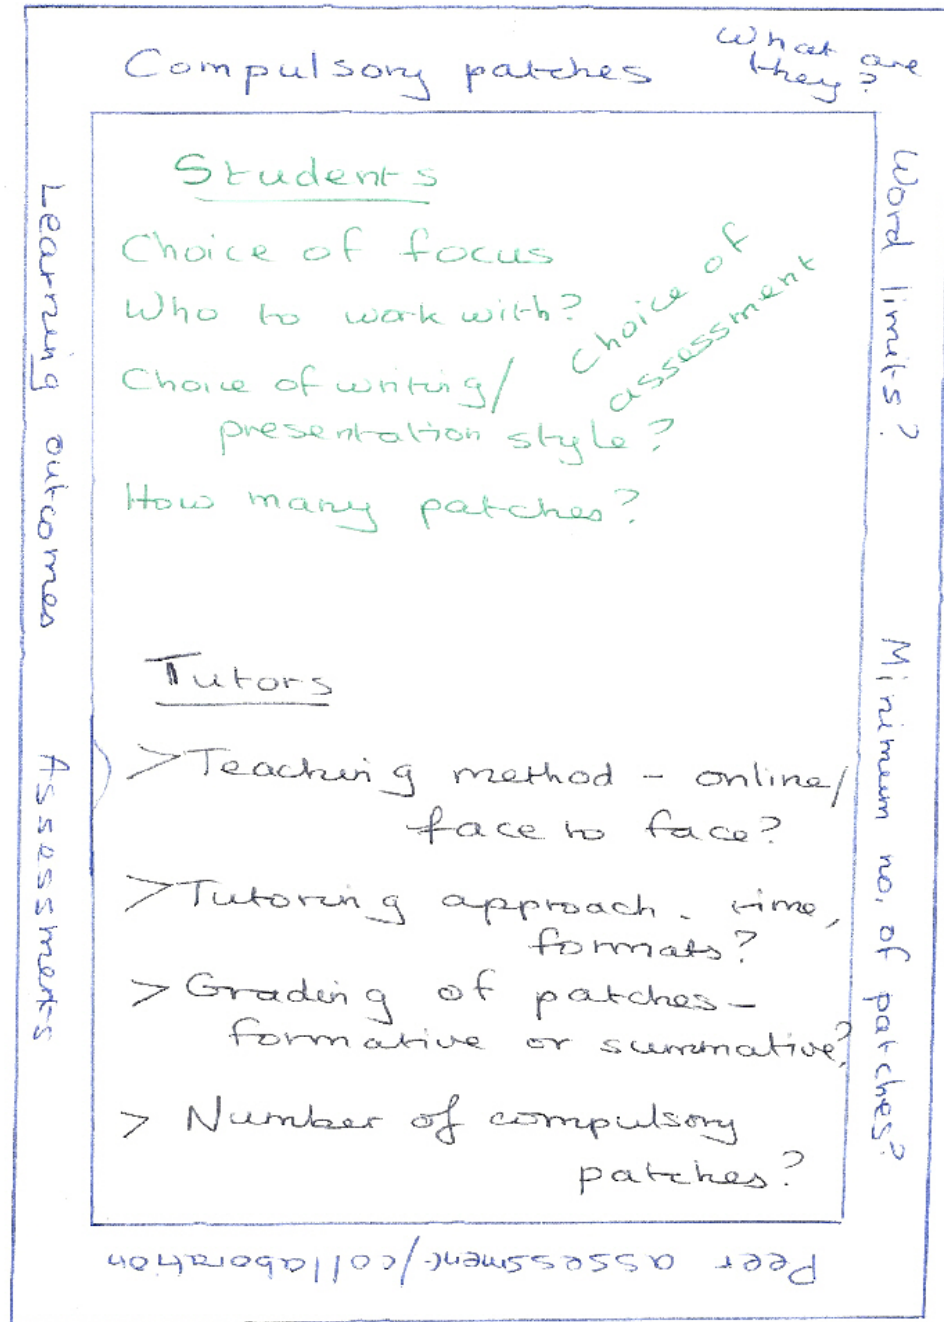 Compulsory patches
What are
they?
Word limits?
Minimum no. of patches?
Peer assessment/collaboration
Learning outcomes
Assessments
Students
Choice of focus
Who to work with?
Choice of writing/
presentation style?
Choice of
assessment
How many patches?
Tutors
> Teaching method - online/
face to face?
> Tutoring approach - time,
formats?
> Grading of patches -
formative or summative?
> Number of compulsory
patches?